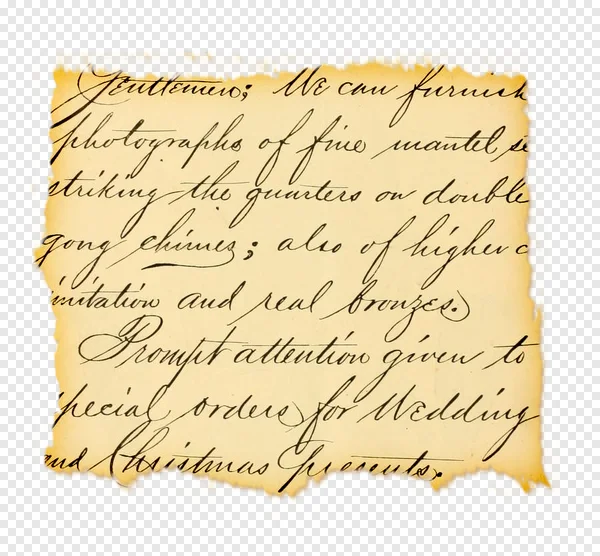 Gentlemen; We can furnish
photographs of fine mantel se
striking the quarters on double
gong chimes; also of higher c
imitation and real bronzes.
Prompt attention given to
special orders for Wedding
and Christmas presents.